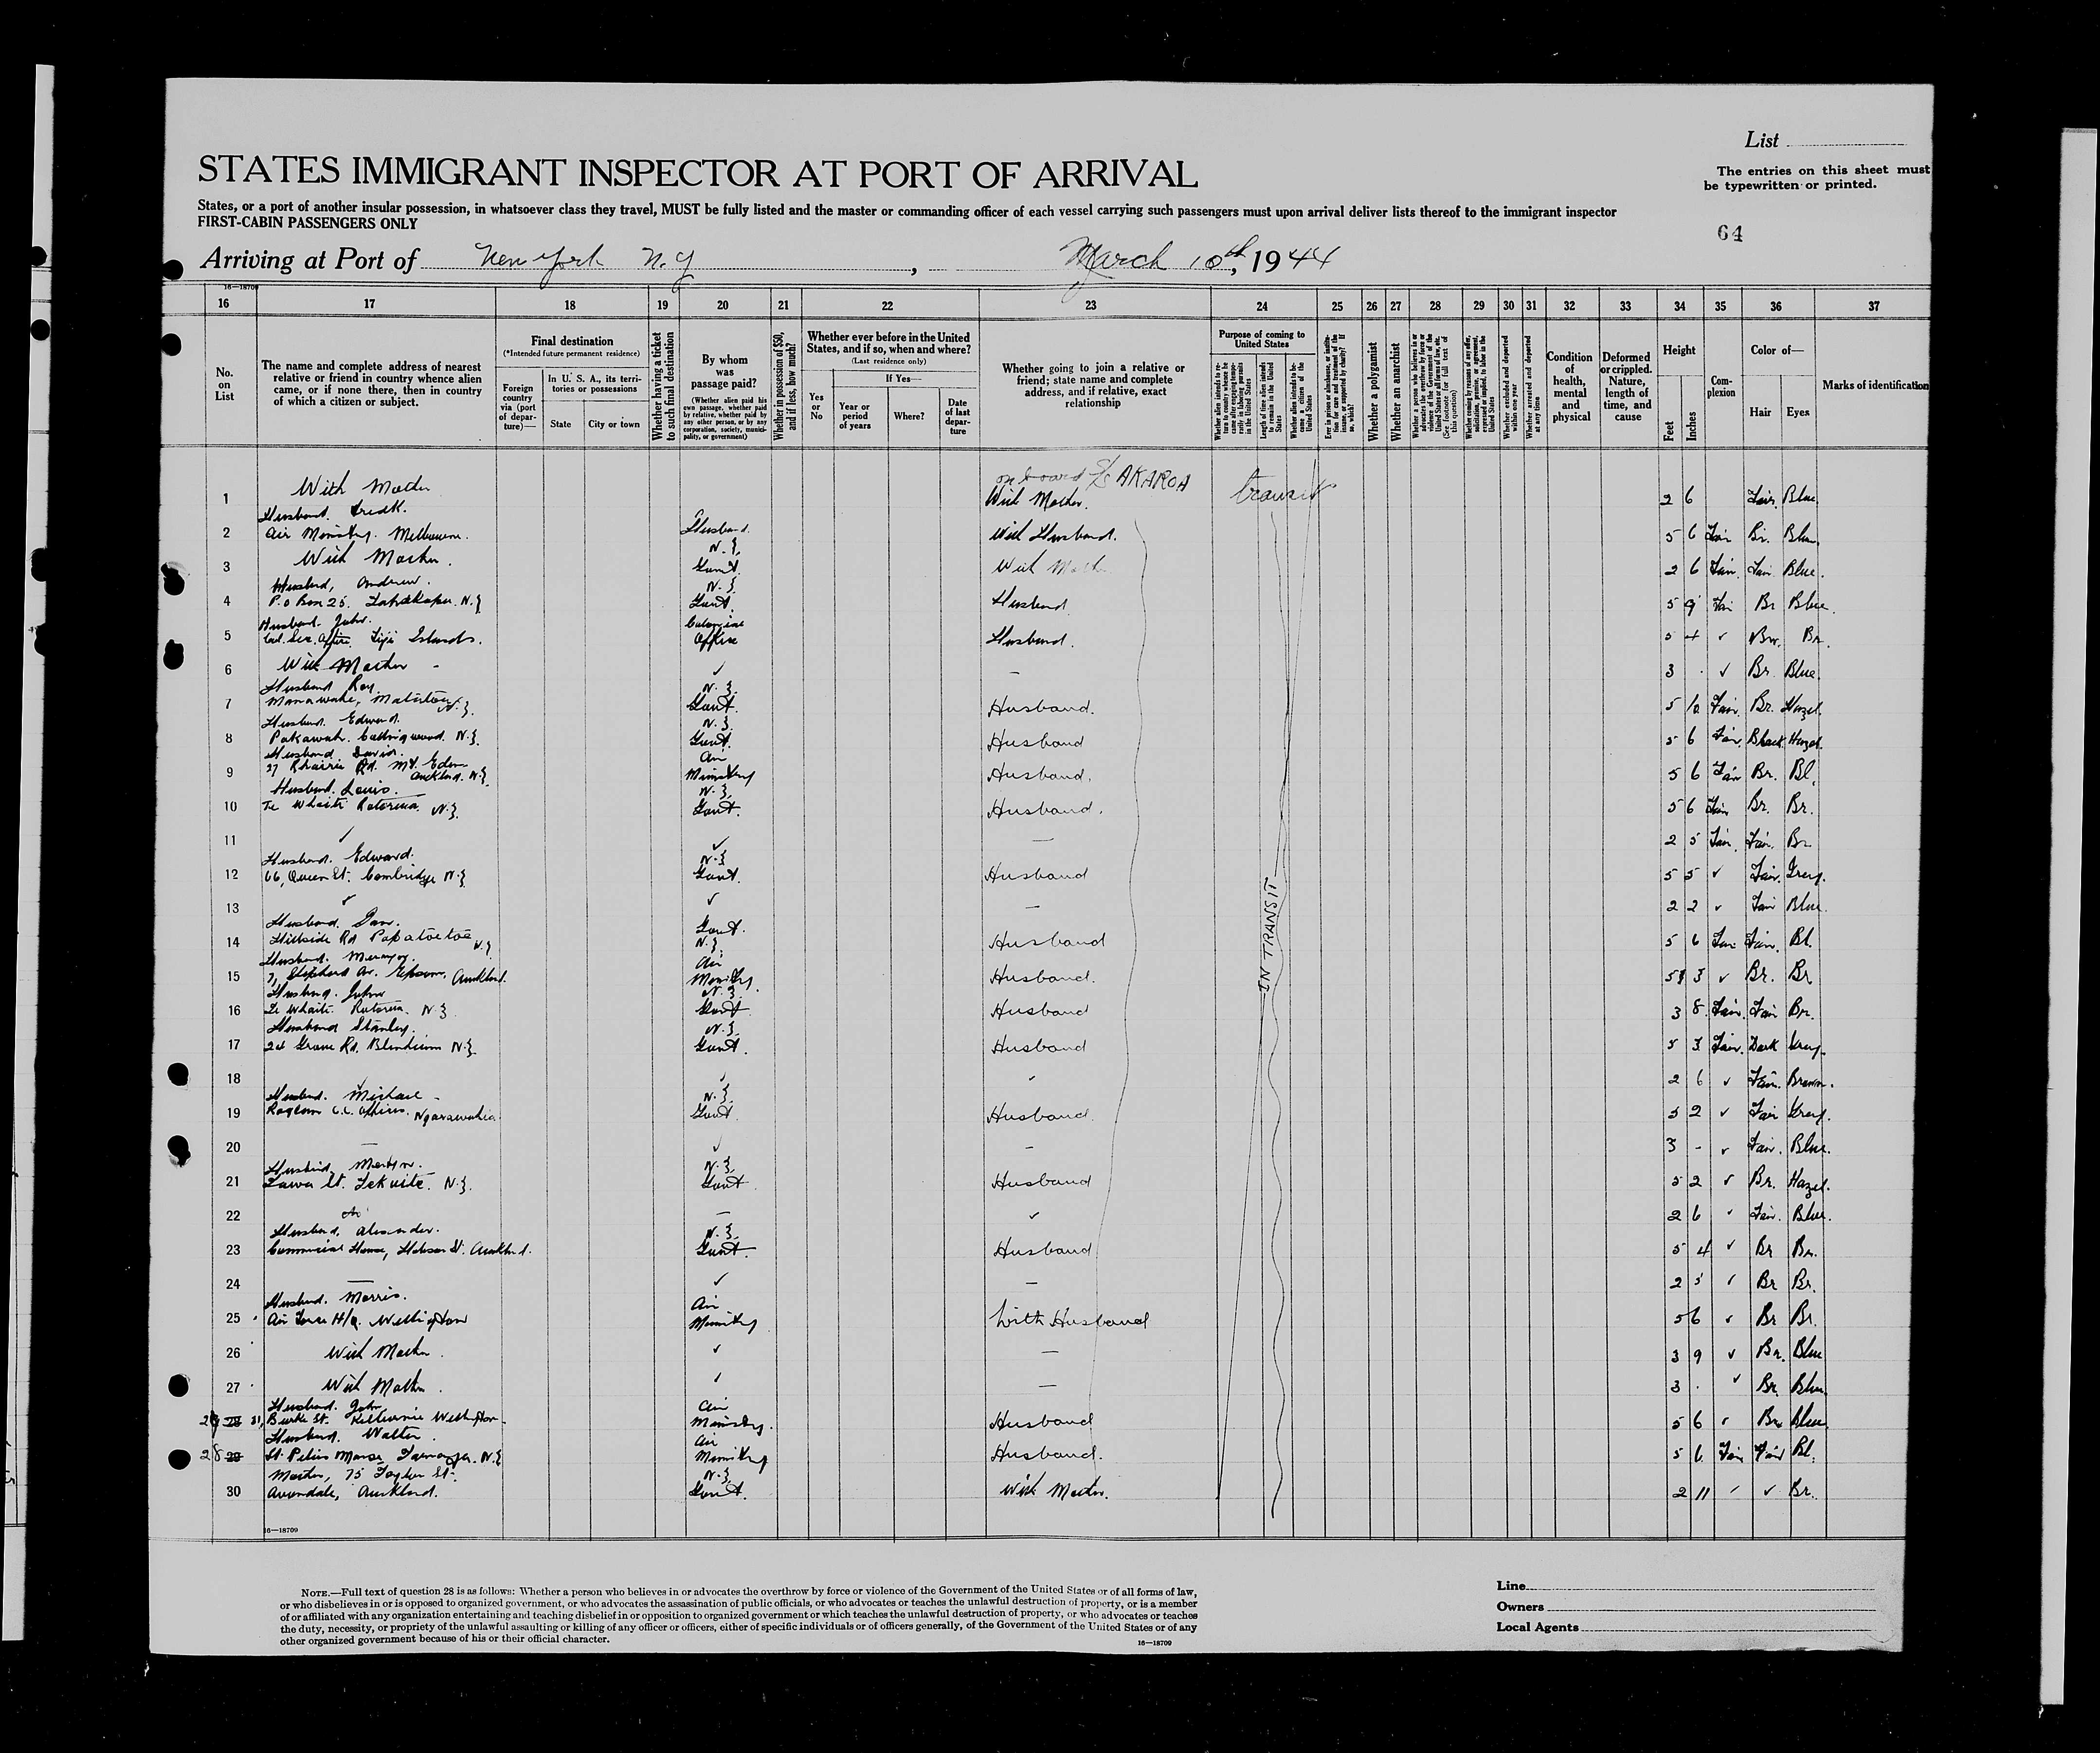 List
The entries on this sheet must
be typewritten or printed.
STATES IMMIGRANT INSPECTOR AT PORT OF ARRIVAL
States, or a port of another insular possession, in whatsoever class they travel, MUST be fully listed and the master or commanding officer of each vessel carrying such passengers must upon arrival deliver lists thereof to the immigrant inspector
FIRST-CABIN PASSENGERS ONLY
64
Arriving at Port of New York N.Y , March 10th, 1944
16—18709
16 17 18 19 20 21 22 23 24 25 26 27 28 29 30 31 32 33 34 35 36 37
No. on List
The name and complete address of nearest relative or friend in country whence alien came, or if none there, then in country of which a citizen or subject.
Final destination
(*Intended future permanent residence)
Foreign country via (port of departure)—
In U. S. A., its territories or possessions
State
City or town
Whether having a ticket to such final destination
By whom was passage paid?
(Whether alien paid his own passage, whether paid by relative, whether paid by any other person, or by any corporation, society, municipality, or government)
Whether in possession of $50, and if less, how much?
Whether ever before in the United States, and if so, when and where?
(Last residence only)
If Yes—
Yes or No
Year or period of years
Where?
Date of last departure
Whether going to join a relative or friend; state name and complete address, and if relative, exact relationship
Purpose of coming to United States
Length of time alien intends to remain in the United States
Whether alien intends to become a citizen of the United States
Whether a polygamist
Whether an anarchist
Whether excluded and deported within one year
Whether arrested and deported at any time
Condition of health, mental and physical
Deformed or crippled. Nature, length of time, and cause
Height
Feet
Inches
Complexion
Color of—
Hair
Eyes
Marks of identification
on board S/S AKAROA
1 With Mother With Mother. transit 2 6 Fair Blue
Husband. Fredk.
2 Air Ministry. Melbourne. Husband. With Husband. 5 6 Fair Br. Blue
3 With Mother. N.Z. Govt. With Mother 2 6 Fair. Fair Blue.
Husband, Andrew.
4 P.O Box 25. N.Z. N.Z. Govt. Husband 5 9 Fair Br Blue.
Husband. John.
5 Col. Sec. Office Fiji Islands. Colonial Office Husband. 5 4 ✓ Br. Br.
6 With Mother - ✓ — 3 - ✓ Br. Blue.
Husband Roy.
7 N.Z. N.Z. Govt. Husband. 5 10 Fair. Br. Hazel.
Husband. Edward.
8 Collingwood. N.Z. N.Z. Govt. Husband 5 6 Fair. Black Hazel.
Husband David.
9 37 Rd. Mt. Eden Auckland. N.Z. Air Ministry Husband. 5 6 Fair Br. Bl.
Husband. Louis.
10 Te Whaiti Rotorua. N.Z. N.Z. Govt. Husband. 5 6 Fair Br. Br.
11 ✓ ✓ — 2 5 Fair. Fair. Br
Husband. Edward.
12 66, Queen St. Cambridge N.Z. N.Z. Govt. Husband 5 5 ✓ Fair. Grey.
13 ✓ ✓ — 2 2 ✓ Fair Blue.
Husband. Dan.
14 Hillside Rd Papatoetoe N.Z. Govt. N.Z. Husband 5 6 Fair Fair. Bl.
Husband.
15 7, Shepherd Av. Epsom, Auckland. Air Ministry Husband. 5 3 ✓ Br. Br
Husband. John
16 Te Whaiti Rotorua. N.Z. N.Z. Govt Husband 3 8 Fair. Fair Br.
Husband Stanley.
17 24 Grove Rd. Blenheim N.Z. N.Z. Govt. Husband 5 3 Fair. Dark Grey.
18 ✓ ✓ ✓ 2 6 ✓ Fair. Brown.
Husband. Michael -
19 Ngaruawahia. N.Z. Govt. Husband. 5 2 ✓ Fair Grey.
20 — ✓ — 3 - ✓ Fair. Blue.
Husband, Martyn.
21 Tawa St. Tekuiti. N.Z. N.Z. Govt Husband 5 2 ✓ Br. Hazel.
22 — ✓ 2 6 ✓ Fair. Blue.
Husband, Alexander.
23 Commercial House, Hobson St. Auckland. N.Z. Govt. Husband 5 4 ✓ Br Br.
24 — ✓ — 2 5 ✓ Br Br.
Husband. Morris.
25 Air Force H/Q. Wellington Air Ministry With Husband 5 6 ✓ Br Br.
26 With Mother. ✓ — 3 9 ✓ Br. Blue
27 With Mother. ✓ — 3 . ✓ Br. Blue
Husband. John
29 28 31, Burke St. Kilbirnie Wellington. Air Ministry. Husband 5 6 ✓ Br Blue.
Husband. Walter.
28 29 N.Z. Air Ministry Husband. 5 6 Fair Fair Bl.
Mother, 75 Taylor St.
30 Avondale, Auckland. N.Z. Govt. With Mother. 2 11 ✓ ✓ Br.
IN TRANSIT
16—18709
NOTE.—Full text of question 28 is as follows: Whether a person who believes in or advocates the overthrow by force or violence of the Government of the United States or of all forms of law,
or who disbelieves in or is opposed to organized government, or who advocates the assassination of public officials, or who advocates or teaches the unlawful destruction of property, or is a member
of or affiliated with any organization entertaining and teaching disbelief in or opposition to organized government or which teaches the unlawful destruction of property, or who advocates or teaches
the duty, necessity, or propriety of the unlawful assaulting or killing of any officer or officers, either of specific individuals or of officers generally, of the Government of the United States or of any
other organized government because of his or their official character.
16—18709
Line
Owners
Local Agents